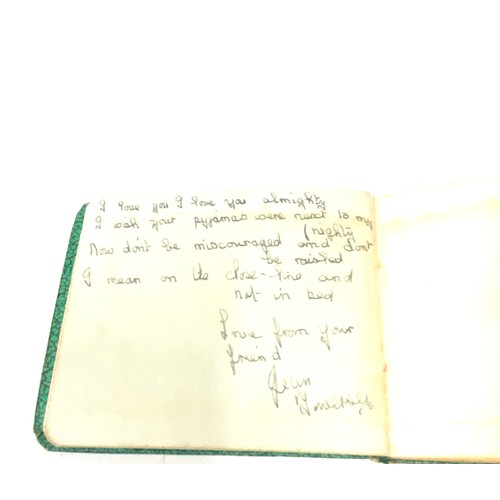 I love you I love you almighty
I wish your pyjamas were next to my
(nighty
Now don't be miscouraged and don't
be misled
I mean on the close-line and
not in bed
Love from your
friend
Jean